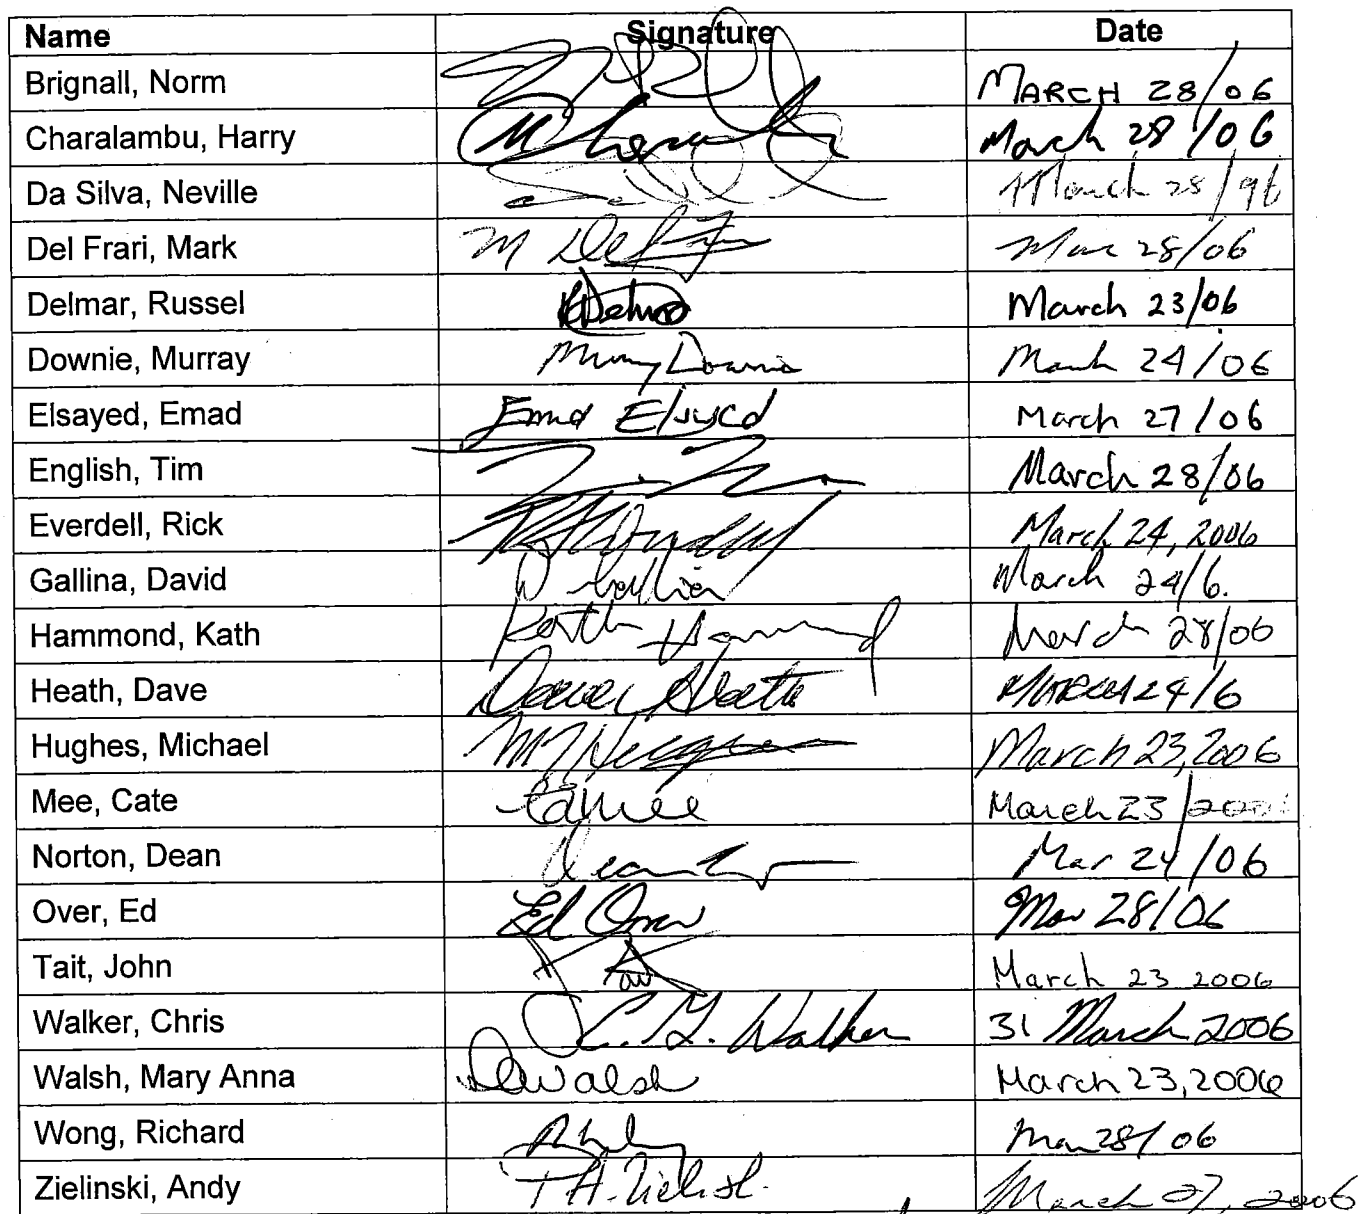 Name Signature Date
Brignall, Norm MARCH 28/06
Charalambu, Harry March 28/06
Da Silva, Neville March 28/96
Del Frari, Mark M Mar 28/06
Delmar, Russel March 23/06
Downie, Murray Murray Downie March 24/06
Elsayed, Emad Emad Elsayed March 27/06
English, Tim March 28/06
Everdell, Rick March 24, 2006
Gallina, David March 24/6.
Hammond, Kath Kath Hammond March 28/06
Heath, Dave Dave Heath MARCH 24/6
Hughes, Michael March 23, 2006
Mee, Cate March 23/2006
Norton, Dean Mar 24/06
Over, Ed Ed Over Mar 28/06
Tait, John March 23 2006
Walker, Chris C. G. Walker 31 March 2006
Walsh, Mary Anna Walsh March 23, 2006
Wong, Richard Mar 28/06
Zielinski, Andy March 27, 2006